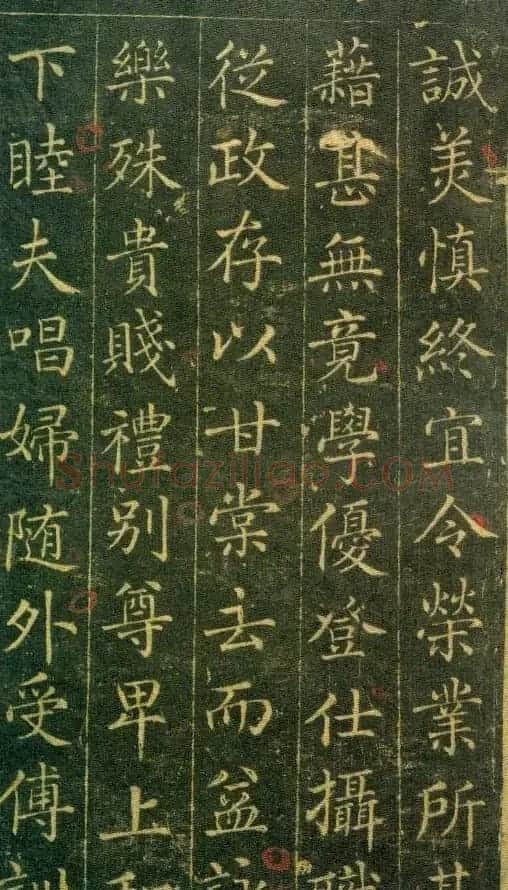 誠美慎終宜令榮業所基
藉甚無竟學優登仕攝職
從政存以甘棠去而益詠
樂殊貴賤禮別尊卑上和
下睦夫唱婦随外受傅訓
Shufaziliao.COM